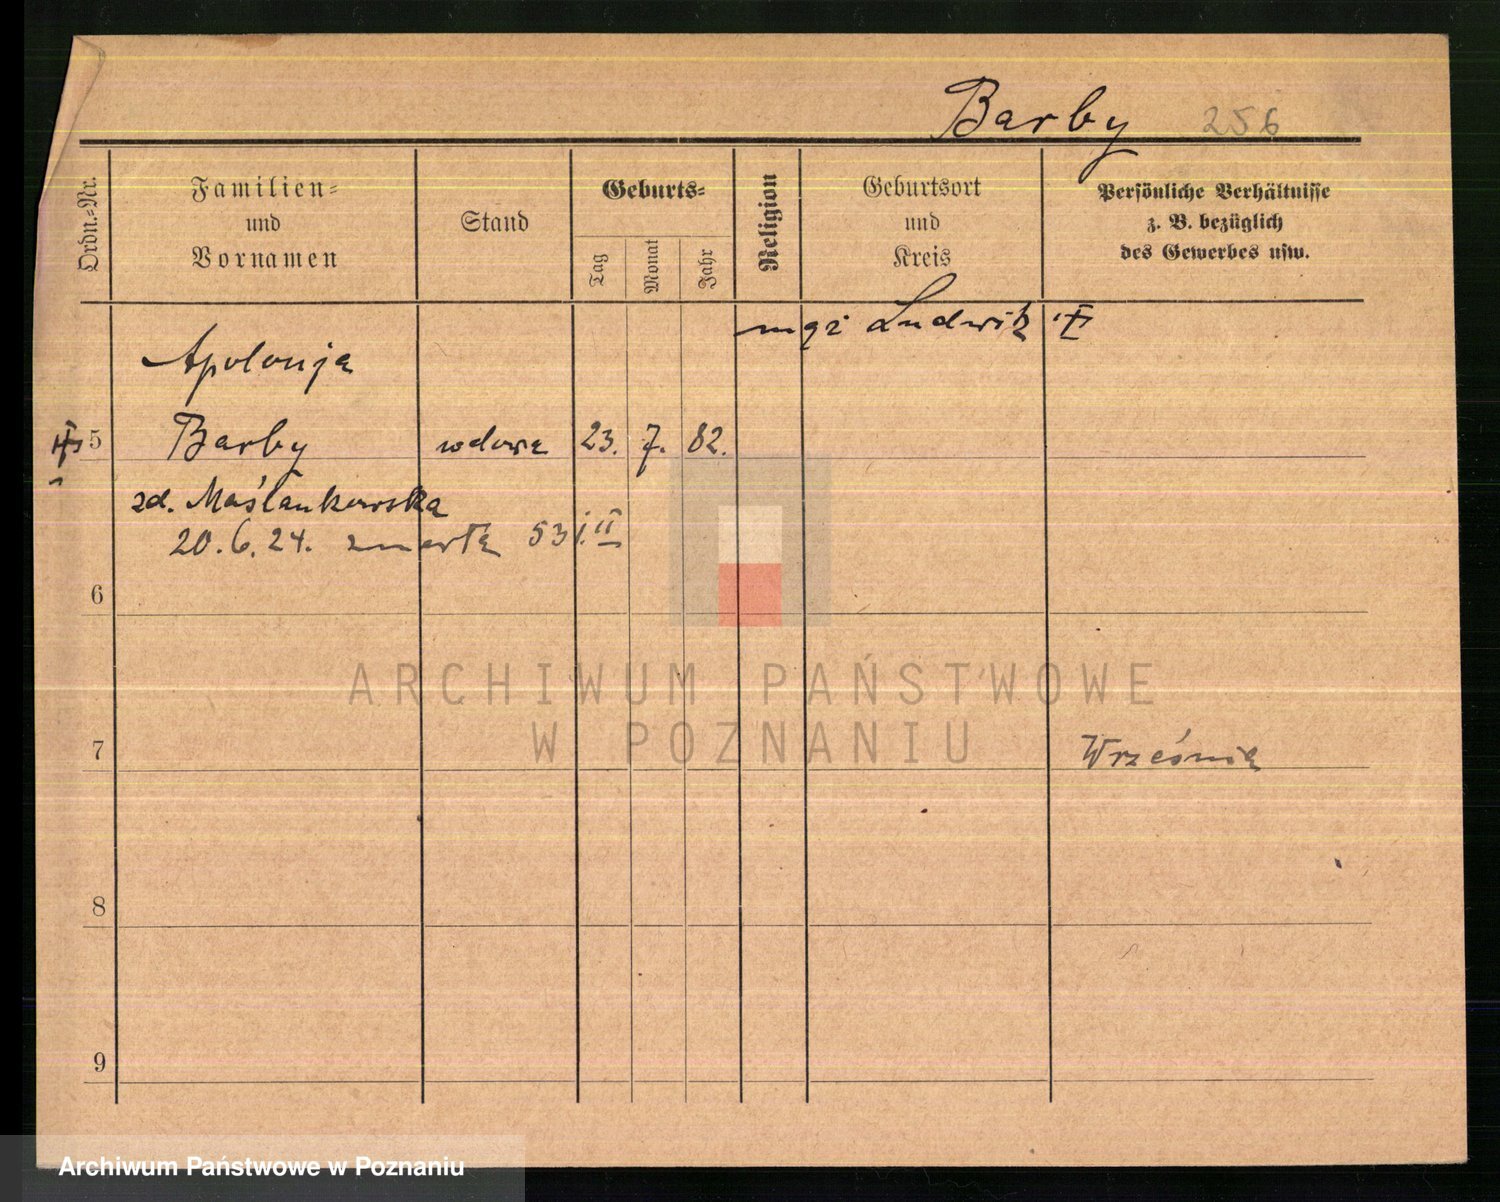 Barby 256
Ordn.=Nr.
Familien=
und
Vornamen
Stand
Geburts=
Tag
Monat
Jahr
Religion
Geburtsort
und
Kreis
Persönliche Verhältnisse
z. B. bezüglich
des Gewerbes usw.
mąż Ludwik
Apolonja
5 Barby wdowa 23. 7. 82.
zd. Maślankowska
20.6.24. zmarła 53
6
7 Wrześnie
8
9
ARCHIWUM PAŃSTWOWE
W POZNANIU
Archiwum Państwowe w Poznaniu